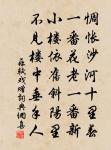 惆悵沙河十里春
一番花老一番新
小樓依舊斜陽里
不見樓中垂手人
蘇軾戲贈詞典網書